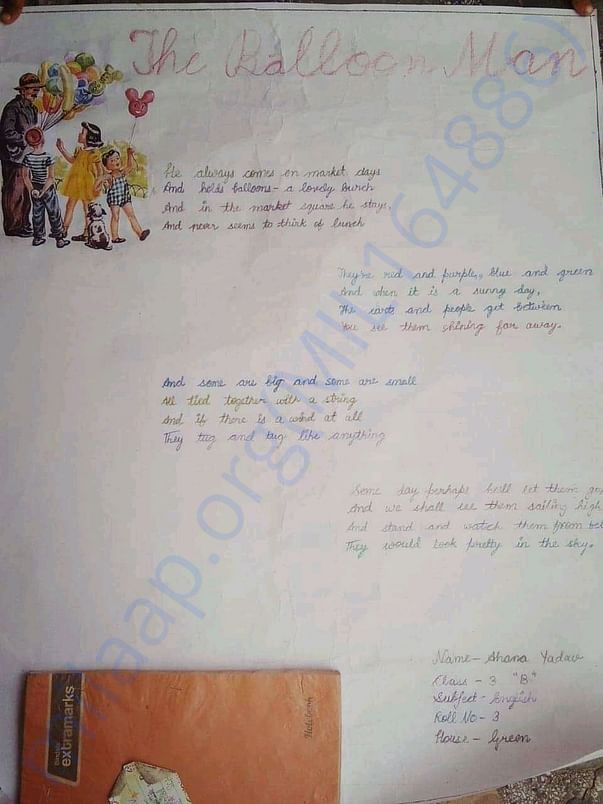 The Balloon Man
He always comes on market days
And holds balloons - a lovely bunch
And in the market square he stays,
And never seems to think of lunch
They're red and purple, blue and green
And when it is a sunny day,
The carts and people get between
You see them shining far away.
And some are big and some are small
All tied together with a string
And if there is a wind at all
They tug and tug like anything
Some day perhaps he'll let them go
And we shall see them sailing high,
And stand and watch them from bel
They would look pretty in the sky.
Name - Ahana Yadav
Class - 3 "B"
Subject - English
Roll No - 3
House - Green
extramarks
Notebook
milaap.org/MIL/164886